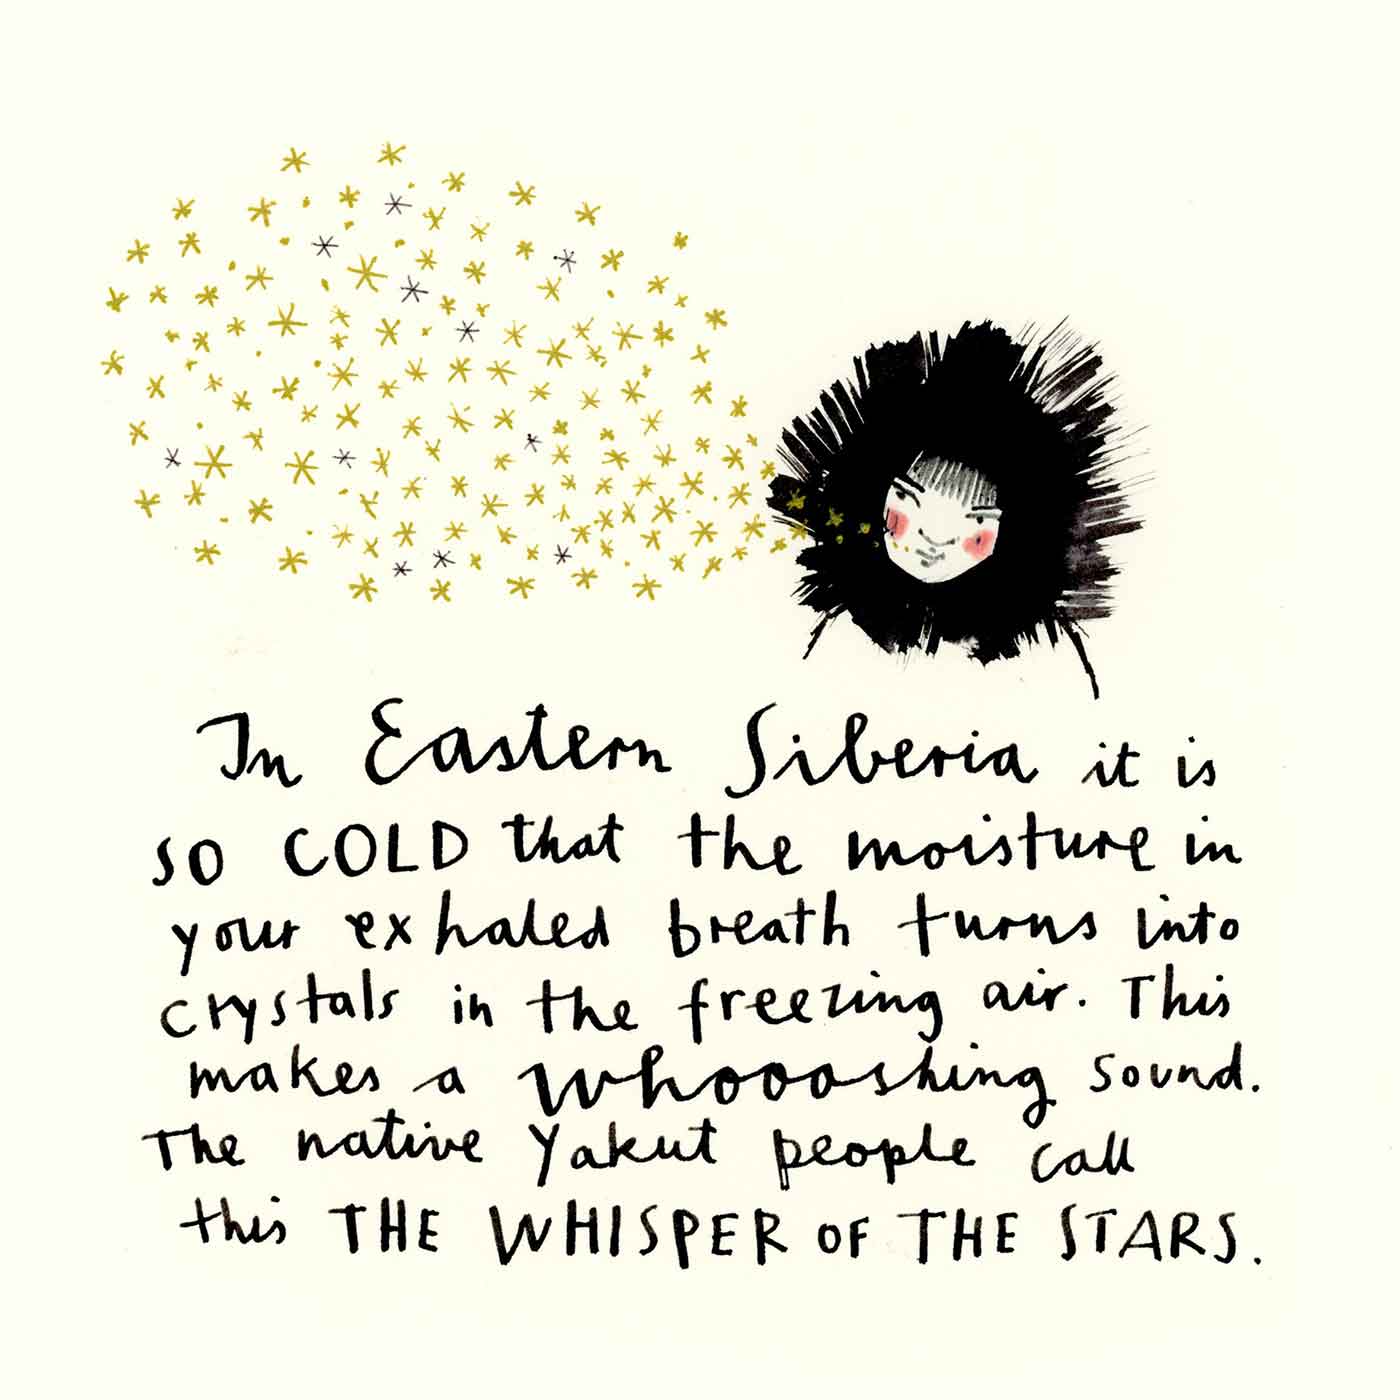 In Eastern Siberia it is
SO COLD that the moisture in
your exhaled breath turns into
crystals in the freezing air. This
makes a whoooshing sound.
The native Yakut people call
this THE WHISPER OF THE STARS.